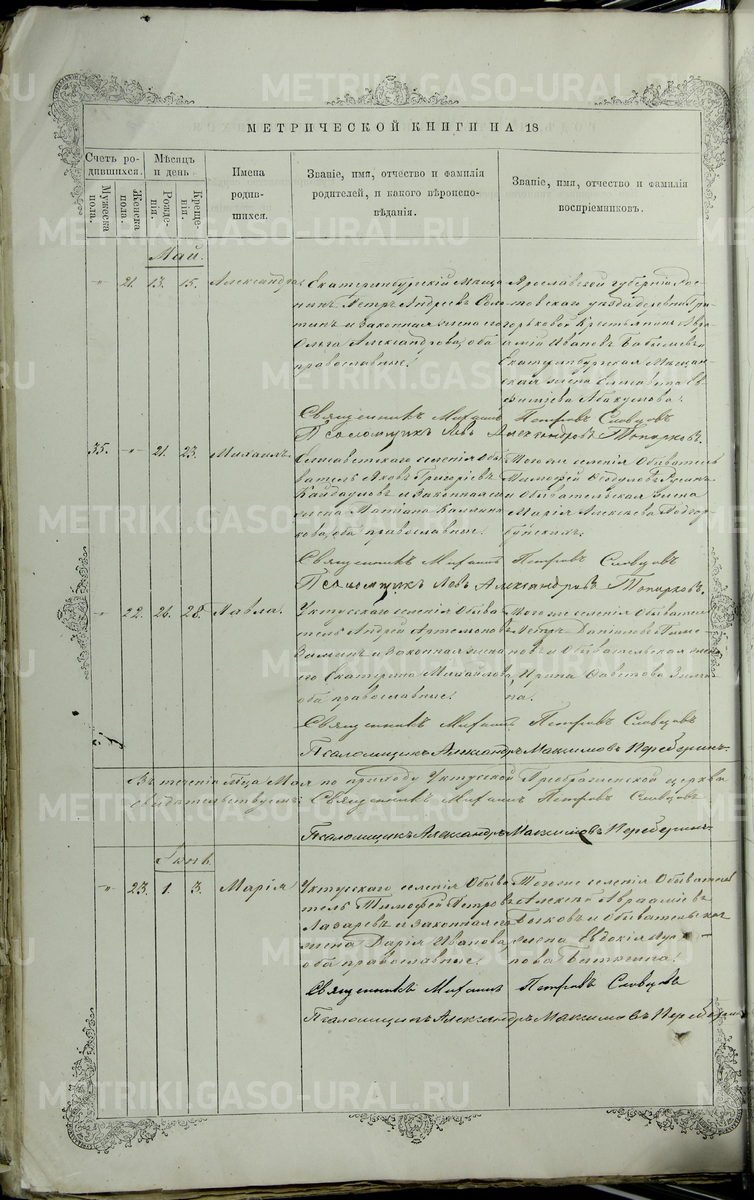 МЕТРИЧЕСКОЙ КНИГИ НА 18
Счетъ ро-
дившихся.
Мужеска
пола.
Женска
пола.
Мѣсяцъ
и день
Рожде-
нія.
Креще-
нія.
Имена
родив-
шихся.
Званіе, имя, отчество и фамилія
родителей, и какого вѣроиспо-
вѣданія.
Званіе, имя, отчество и фамилія
воспріемниковъ.
Май.
" 21. 13. 15. Александра
Екатеринбургскій Мѣща
нинъ Петръ Андреевъ
и законная жена его
Ольга Александрова, оба
православные.
Ярославской губерніи
товскаго уѣзда
Крестьянинъ
Ивановъ и
Екатеринбургская Мѣщан
ская жена Елисавета
Абакумова.
Священникъ Михаилъ Петровъ Словцовъ
Псаломщикъ Левъ Александровъ Топорковъ.
35. " 21. 23. Михаилъ.
Елисаветскаго селенія Обы
ватель Яковъ Григорьевъ
и законная
жена Татіана
оба православные.
Тогоже селенія Обыватель
Тимофей
и Обывательская жена
Марія Алексѣева
Священникъ Михаилъ Петровъ Словцовъ
Псаломщикъ Левъ Александровъ Топорковъ.
" 22. 26. 28. Павла.
Уктусскаго селенія Обыва
тель Андрей Артемоновъ
и законная жена
его Екатерина Михайлова,
оба православные.
Тогоже селенія Обыватель
Петръ Даниловъ
и Обывательская жена
Ирина Савитова
Священникъ Михаилъ Петровъ Словцовъ
Псаломщикъ Александръ Максимовъ Переберинъ
Въ теченіи м-ца Мая по приходу Уктусской Преображенской церкви
свидѣтельствуемъ: Священникъ Михаилъ Петровъ Словцовъ
Псаломщикъ Александръ Максимовъ Переберинъ
Іюнь
" 23. 1. 3. Марія
Уктусскаго селенія Обыва
тель Тимофей Петровъ
Лазаревъ и законная его
жена Дарія Иванова,
оба православные.
Тогоже селенія Обыватель
Алексѣй Авраміевъ
Быковъ и Обывательская
жена Евдокія
Священникъ Михаилъ Петровъ Словцовъ
Псаломщикъ Александръ Максимовъ Переберинъ
METRIKI.GASO-URAL.RU